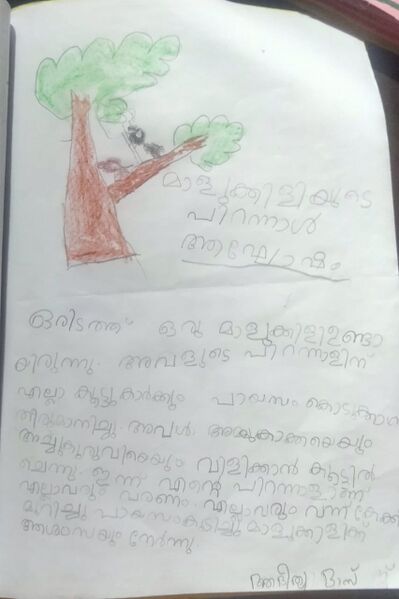 മാളുക്കിളിയുടെ
പിറന്നാൾ
ആഘോഷം
ഒരിടത്ത് ഒരു മാളുക്കിളിഉണ്ടാ
യിരുന്നു. അവളുടെ പിറന്നാളിന്
എല്ലാ കൂട്ടുകാർക്കും പായസം കൊടുക്കാൻ
തീരുമാനിച്ചു. അവൾ. അമ്മുകാക്കയെയും
അച്ചുകുരുവിയെയും വിളിക്കാൻ കൂട്ടിൽ
ചെന്നു. ഇന്ന് എന്റെ പിറന്നാളാണ്
എല്ലാവരും വരണം. എല്ലാവരും വന്ന് കേക്ക്
മുറിച്ചു പായസംകുടിച്ചു മാളുക്കിളിക്ക്
ആശംസയും നേർന്നു.
ദാസ്